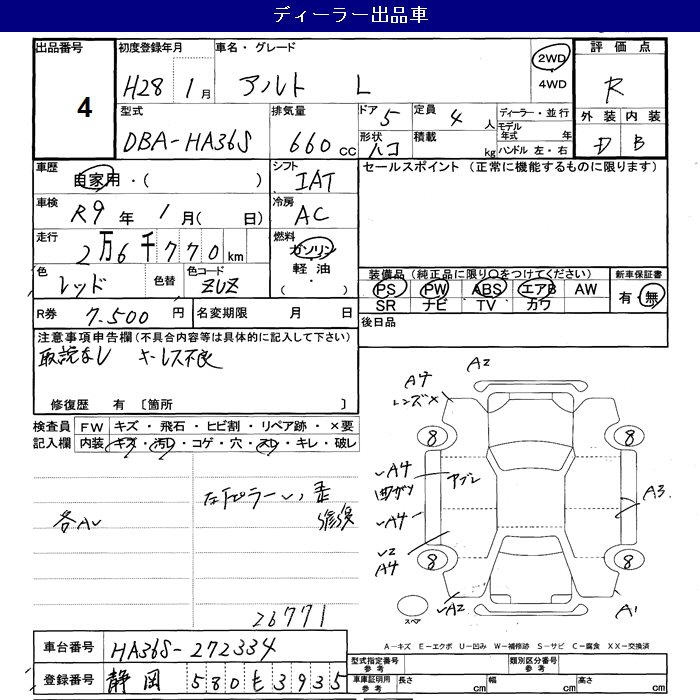 ディーラー出品車
出品番号 4
初度登録年月 H28 1月
車名・グレード アルト L
2WD
4WD
評価点 R
外装 内装
D B
型式 DBA-HA36S
排気量 660 CC
ドア 5
定員 4 人
形状 ハコ
積載 kg
ディーラー・並行
モデル年式 年
ハンドル 左・右
車歴 自家用・( )
シフト IAT
セールスポイント (正常に機能するものに限ります)
車検 R9 年 1 月( 日)
冷房 AC
走行 2万6千770 km
燃料 ガソリン
軽油
・( )
色 レッド
色替
色コード ZUZ
装備品(純正品に限り○をつけてください)
新車保証書
PS PW ABS エアB AW
有・無
SR ナビ TV カワ
R券 7.500 円
名変期限 月 日
後日品
注意事項申告欄(不具合内容等は具体的に記入して下さい)
取説なし キーレス不良
修復歴 有 [箇所 ]
検査員記入欄
FW キズ・飛石・ヒビ割・リペア跡・×要
内装 キズ・汚レ・コゲ・穴・スレ・キレ・破レ
各AU
26771
A2
A4
レンズX
8
8
A4
アブレ
A4
A3
A4
8
8
A2
A1
スペア
A-キズ E-エクボ U-凹み W-補修跡 S-サビ C-腐食 XX-交換済
車台番号 HA36S-272334
登録番号 静岡 580 も 3935
型式指定番号 参考
類別区分番号 参考
車庫証明用 参考
長さ cm
幅 cm
高さ cm